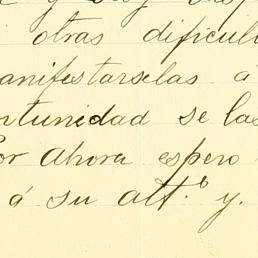 otras dificul
anifestarselas á
rtunidad se las
Por ahora espero
á su att.º y.